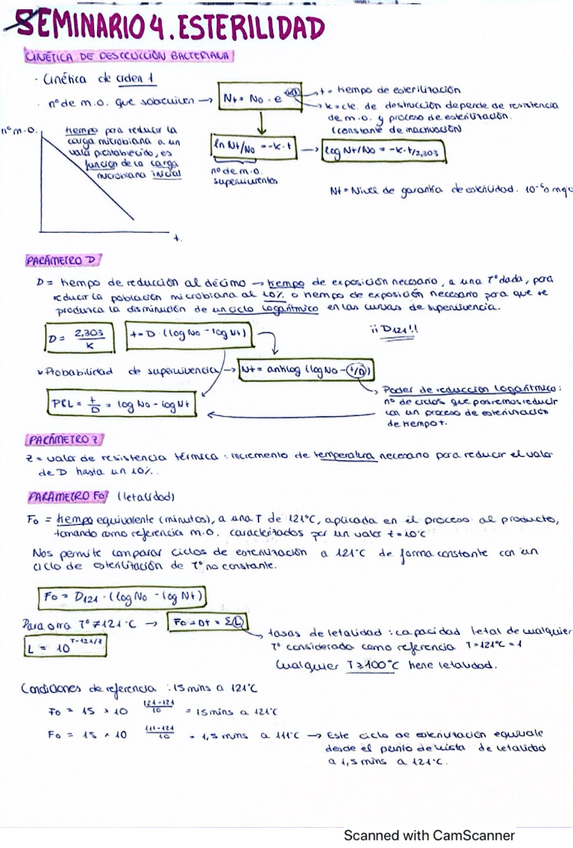 SEMINARIO 4. ESTERILIDAD
CINÉTICA DE DESTRUCCIÓN BACTERIANA
· Cinética de orden 1
· nº de m.o. que sobreviven → Nt = No · e
t = tiempo de esterilización
k = cte. de destrucción depende de resistencia
de m.o. y proceso de esterilización.
(constante de inactivación)
nº m.o.
tiempo para reducir la
carga microbiana a un
valor preestablecido, es
función de la carga
microbiana inicial
t.
ln Nt/No = -k·t → log Nt/No = -k·t/2,303
nº de m.o.
supervivientes
Nt = Nivel de garantía de esterilidad. 10⁻⁶
PARÁMETRO D
D = tiempo de reducción al décimo → tiempo de exposición necesario, a una Tº dada, para
reducir la población microbiana al 10% o tiempo de exposición necesario para que se
produzca la disminución de un ciclo logarítmico en las curvas de supervivencia.
D = 2,303/K
t = D (log No - log Nt)
¡¡D121!!
Probabilidad de supervivencia → Nt = antilog (log No - t/D)
PRL = t/D = log No - log Nt
Poder de reducción logarítmico:
nº de ciclos que podremos reducir
con un proceso de esterilización
de tiempo t.
PARÁMETRO z
z = valor de resistencia térmica: incremento de temperatura necesario para reducir el valor
de D hasta un 10%.
PARÁMETRO Fo (letalidad)
Fo = tiempo equivalente (minutos), a una T de 121ºC, aplicada en el proceso al producto,
tomando como referencia m.o. caracterizados por un valor z = 10ºC
Nos permite comparar ciclos de esterilización a 121ºC de forma constante con un
ciclo de esterilización de Tº no constante.
Fo = D121 · (log No - log Nt)
Para otra Tº ≠ 121ºC → Fo = Dt × ΣL
L = 10^(T-121/z)
tasas de letalidad: capacidad letal de cualquier
Tº considerada como referencia T=121ºC = 1
Cualquier T ≥ 100ºC tiene letalidad.
Condiciones de referencia: 15 mins a 121ºC
Fo = 15 × 10^(121-121/10) = 15 mins a 121ºC
Fo = 15 × 10^(111-121/10) = 1,5 mins a 111ºC → Este ciclo de esterilización equivale
desde el punto de vista de letalidad
a 1,5 mins a 121ºC.
Scanned with CamScanner